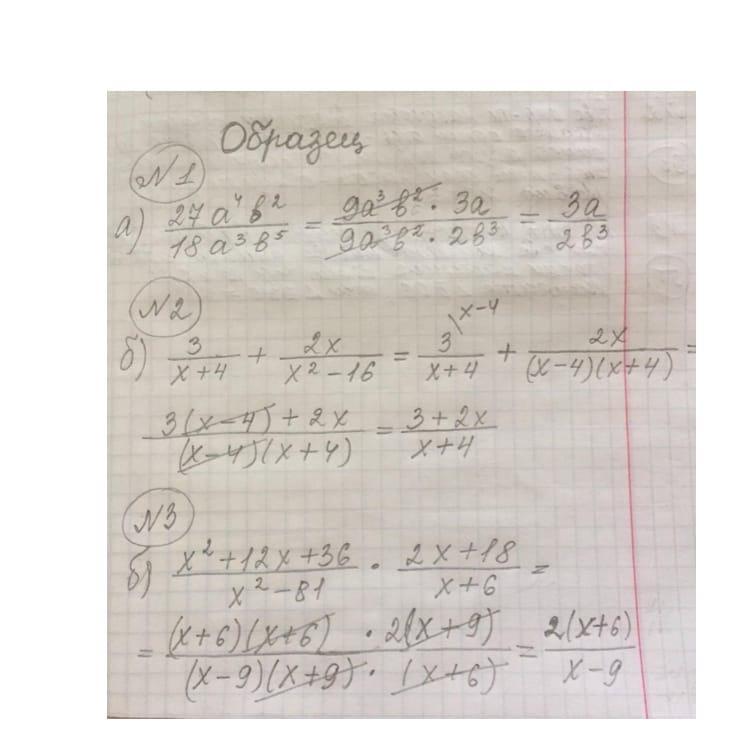 Образец
№1
а) 27a⁴b²/18a³b⁵ = 9a³b² · 3a/9a³b² · 2b³ = 3a/2b³
№2
б) 3/x+4 + 2x/x²−16 = 3\x−4/x+4 + 2x/(x−4)(x+4) =
3(x−4)+2x/(x−4)(x+4) = 3+2x/x+4
№3
б) x²+12x+36/x²−81 · 2x+18/x+6 =
= (x+6)(x+6) · 2(x+9)/(x−9)(x+9) · (x+6) = 2(x+6)/x−9